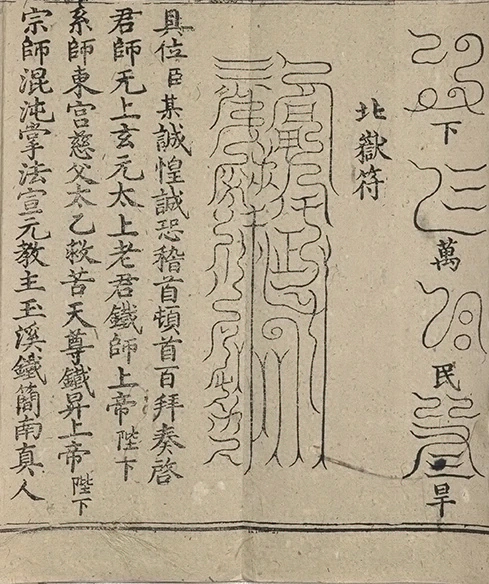 下 萬 民 旱
北嶽符
具位臣某誠惶誠恐稽首頓首百拜奏啓
君師无上玄元太上老君鐵師上帝陛下
系師東宮慈父太乙救苦天尊鐵昇上帝陛下
宗師混沌掌法宣元教主玉溪鐵簡南真人